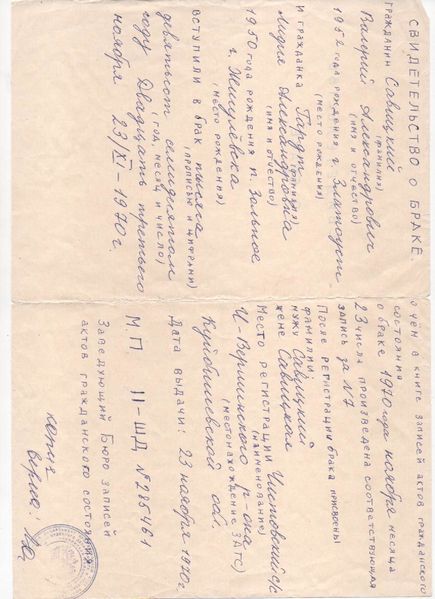 СВИДЕТЕЛЬСТВО О БРАКЕ
ГРАЖДАНИН Савицкий
(фамилия)
Валерий Александрович
(имя и отчество)
1952 года рождения г. Златоуст
(место рождения)
И ГРАЖДАНКА Гардт
(фамилия)
Лидия Александровна
(имя и отчество)
1950 года рождения п. Зольное
г. Жигулевска
(место рождения)
ВСТУПИЛИ В БРАК тысяча
(прописью и цифрами)
девятьсот семидесятом
(год, месяц и число)
году Двадцать третьего
ноября 23/XI - 1970 г.
о чем в книге записей актов гражданского
состояния
о браке 1970 года ноября месяца
23 числа произведена соответствующая
запись за №7
После регистрации брака присвоены
фамилии
мужу Савицкий
жене Савицкая
Место регистрации Чистовский с/с
(наименование)
И-Вершинского р-она
(местонахождение ЗАГС)
Куйбышевской обл.
Дата выдачи: 23 ноября 1970 г.
М.П. II-ШД № 285461
Заведующий Бюро записей
актов гражданского состояния
копия
верна: